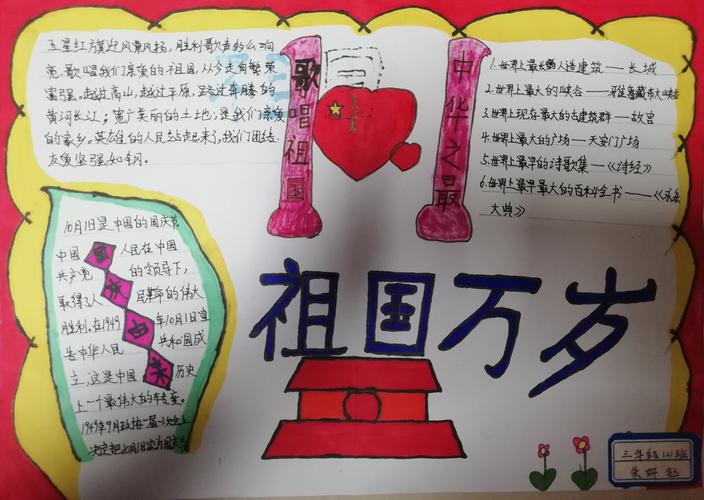 五星红旗迎风飘扬，胜利歌声多么响
亮，歌唱我们亲爱的祖国，从今走向繁荣
富强。越过高山，越过平原，跨过奔腾的
黄河长江；宽广美丽的土地，是我们亲爱
的家乡。英雄的人民站起来了，我们团结
友爱坚强如钢。
歌唱祖国
中华之最
1.世界上最长的人造建筑——长城
2.世界上最大的峡谷——雅鲁藏布大峡谷
3.世界上现存最大的古建筑群——故宫
4.世界上最大的广场——天安门广场
5.世界上最早的诗歌集——《诗经》
6.世界上最早最大的百科全书——《永乐
大典》
10月1日是中国的国庆节
中国人民在中国
共产党的领导下，
取得了人民革命的伟大
胜利，在1949年10月1日宣
告中华人民共和国成
立，这是中国历史
上一个最伟大的转变。
1949年9月政协一届一次会上
决定把10月1日定为国庆节
国庆由来
祖国万岁
三年级(2)班
朱妍